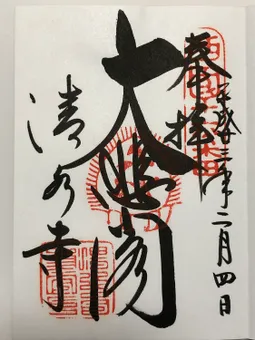 奉拝
平成三十年二月四日
大悲閣
清水寺